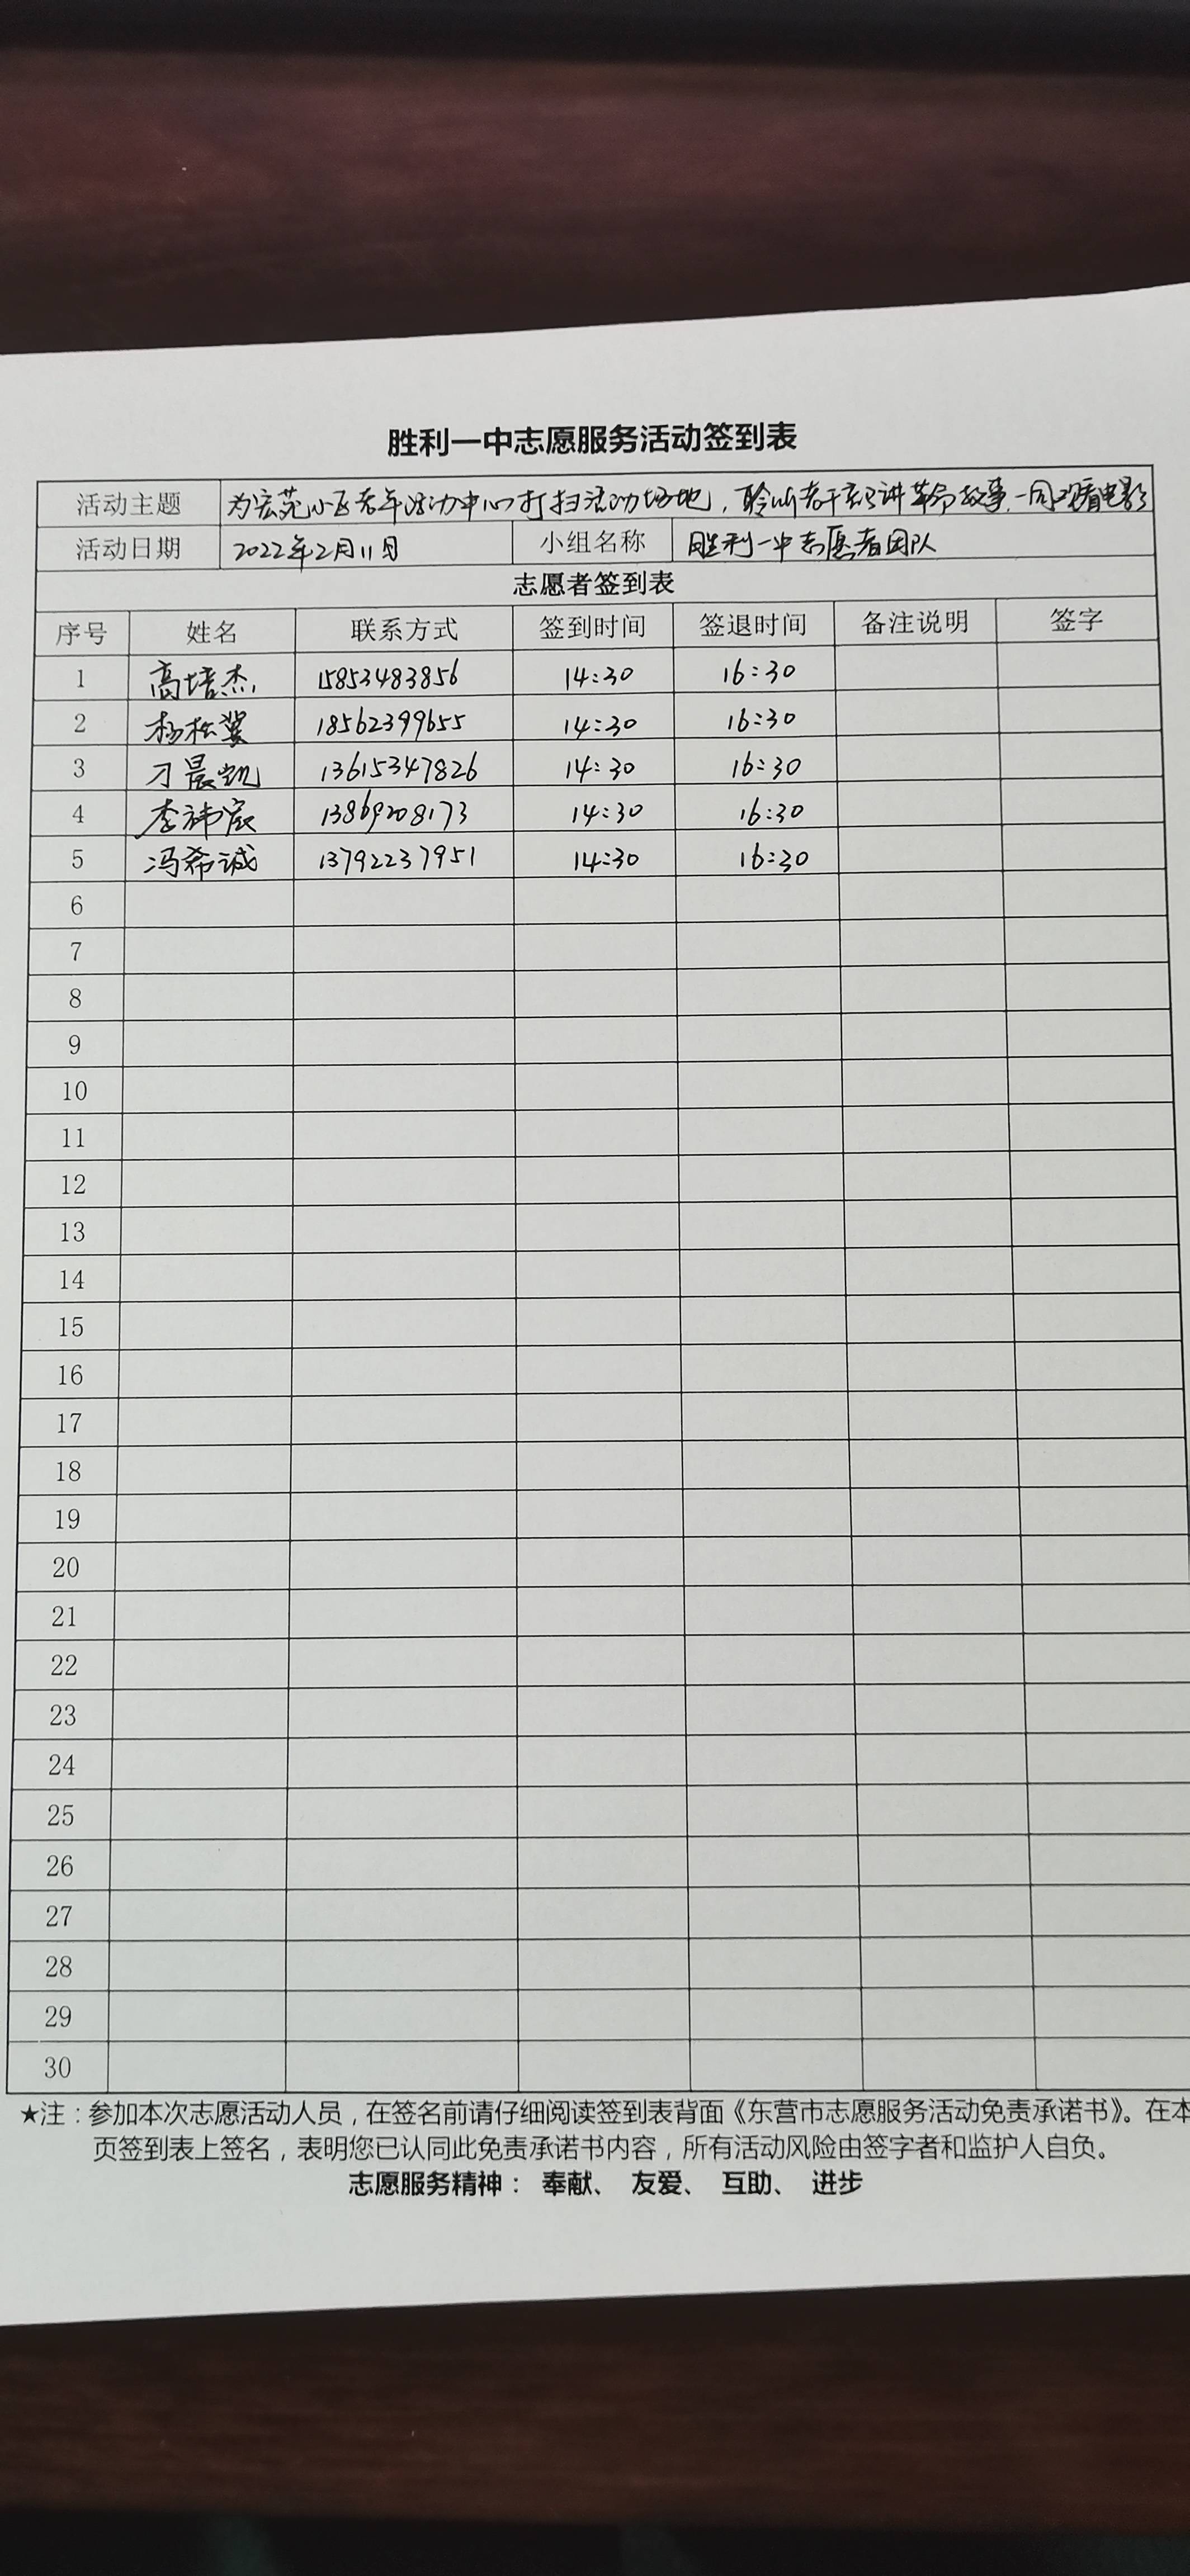 胜利一中志愿服务活动签到表
活动主题 为宏苑小区老年活动中心打扫活动场地，聆听老干部讲革命故事，一同观看电影
活动日期 2022年2月11日 小组名称 胜利一中志愿者团队
志愿者签到表
序号 姓名 联系方式 签到时间 签退时间 备注说明 签字
1 高培杰 15853483856 14:30 16:30
2 杨松霖 18562399655 14:30 16:30
3 刁晨凯 13615347826 14:30 16:30
4 李祎宸 13869208173 14:30 16:30
5 冯希诚 13792237951 14:30 16:30
6
7
8
9
10
11
12
13
14
15
16
17
18
19
20
21
22
23
24
25
26
27
28
29
30
★注：参加本次志愿活动人员，在签名前请仔细阅读签到表背面《东营市志愿服务活动免责承诺书》。在本
页签到表上签名，表明您已认同此免责承诺书内容，所有活动风险由签字者和监护人自负。
志愿服务精神： 奉献、 友爱、 互助、 进步